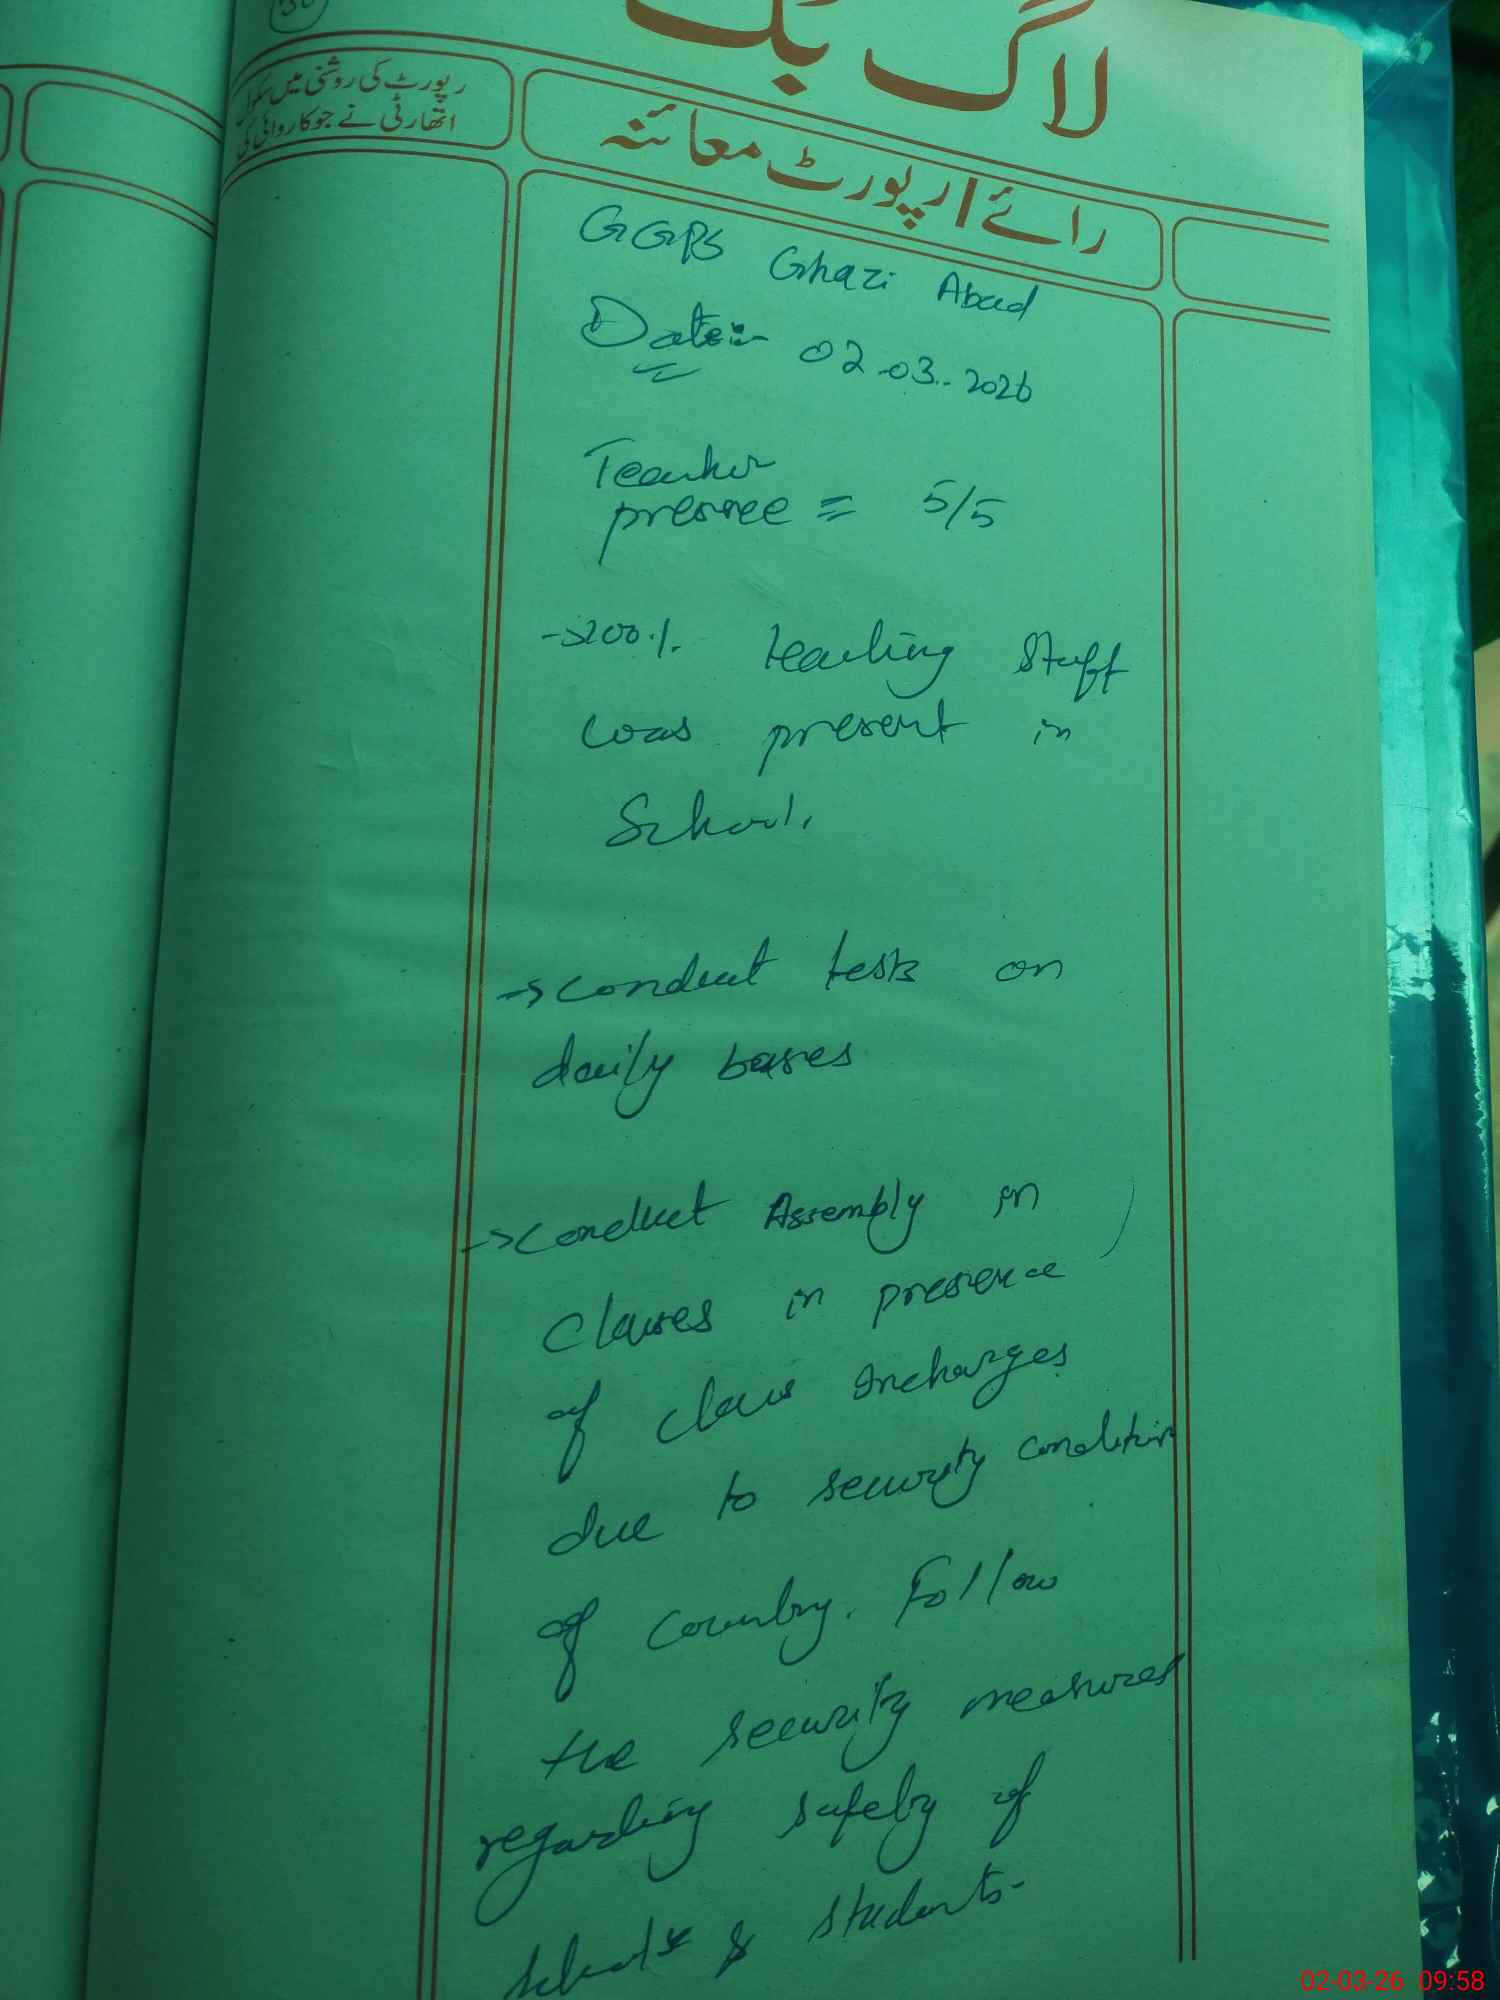 لاگ بک
رپورٹ کی روشنی میں سکول
اتھارٹی نے جو کاروائی کی
رائے / رپورٹ معائنہ
GGPS Ghazi Abad
Date:- 02-03-2026
Teacher
presnee = 5/5
→ 100% teaching staff
was present in
School.
→ conduct tests on
daily bases
→ conduct Assembly in
classes in presence
of class Incharges
due to security condition
of country. Follow
the security measures
regarding safety of
schools & students.
02-03-26 09:58